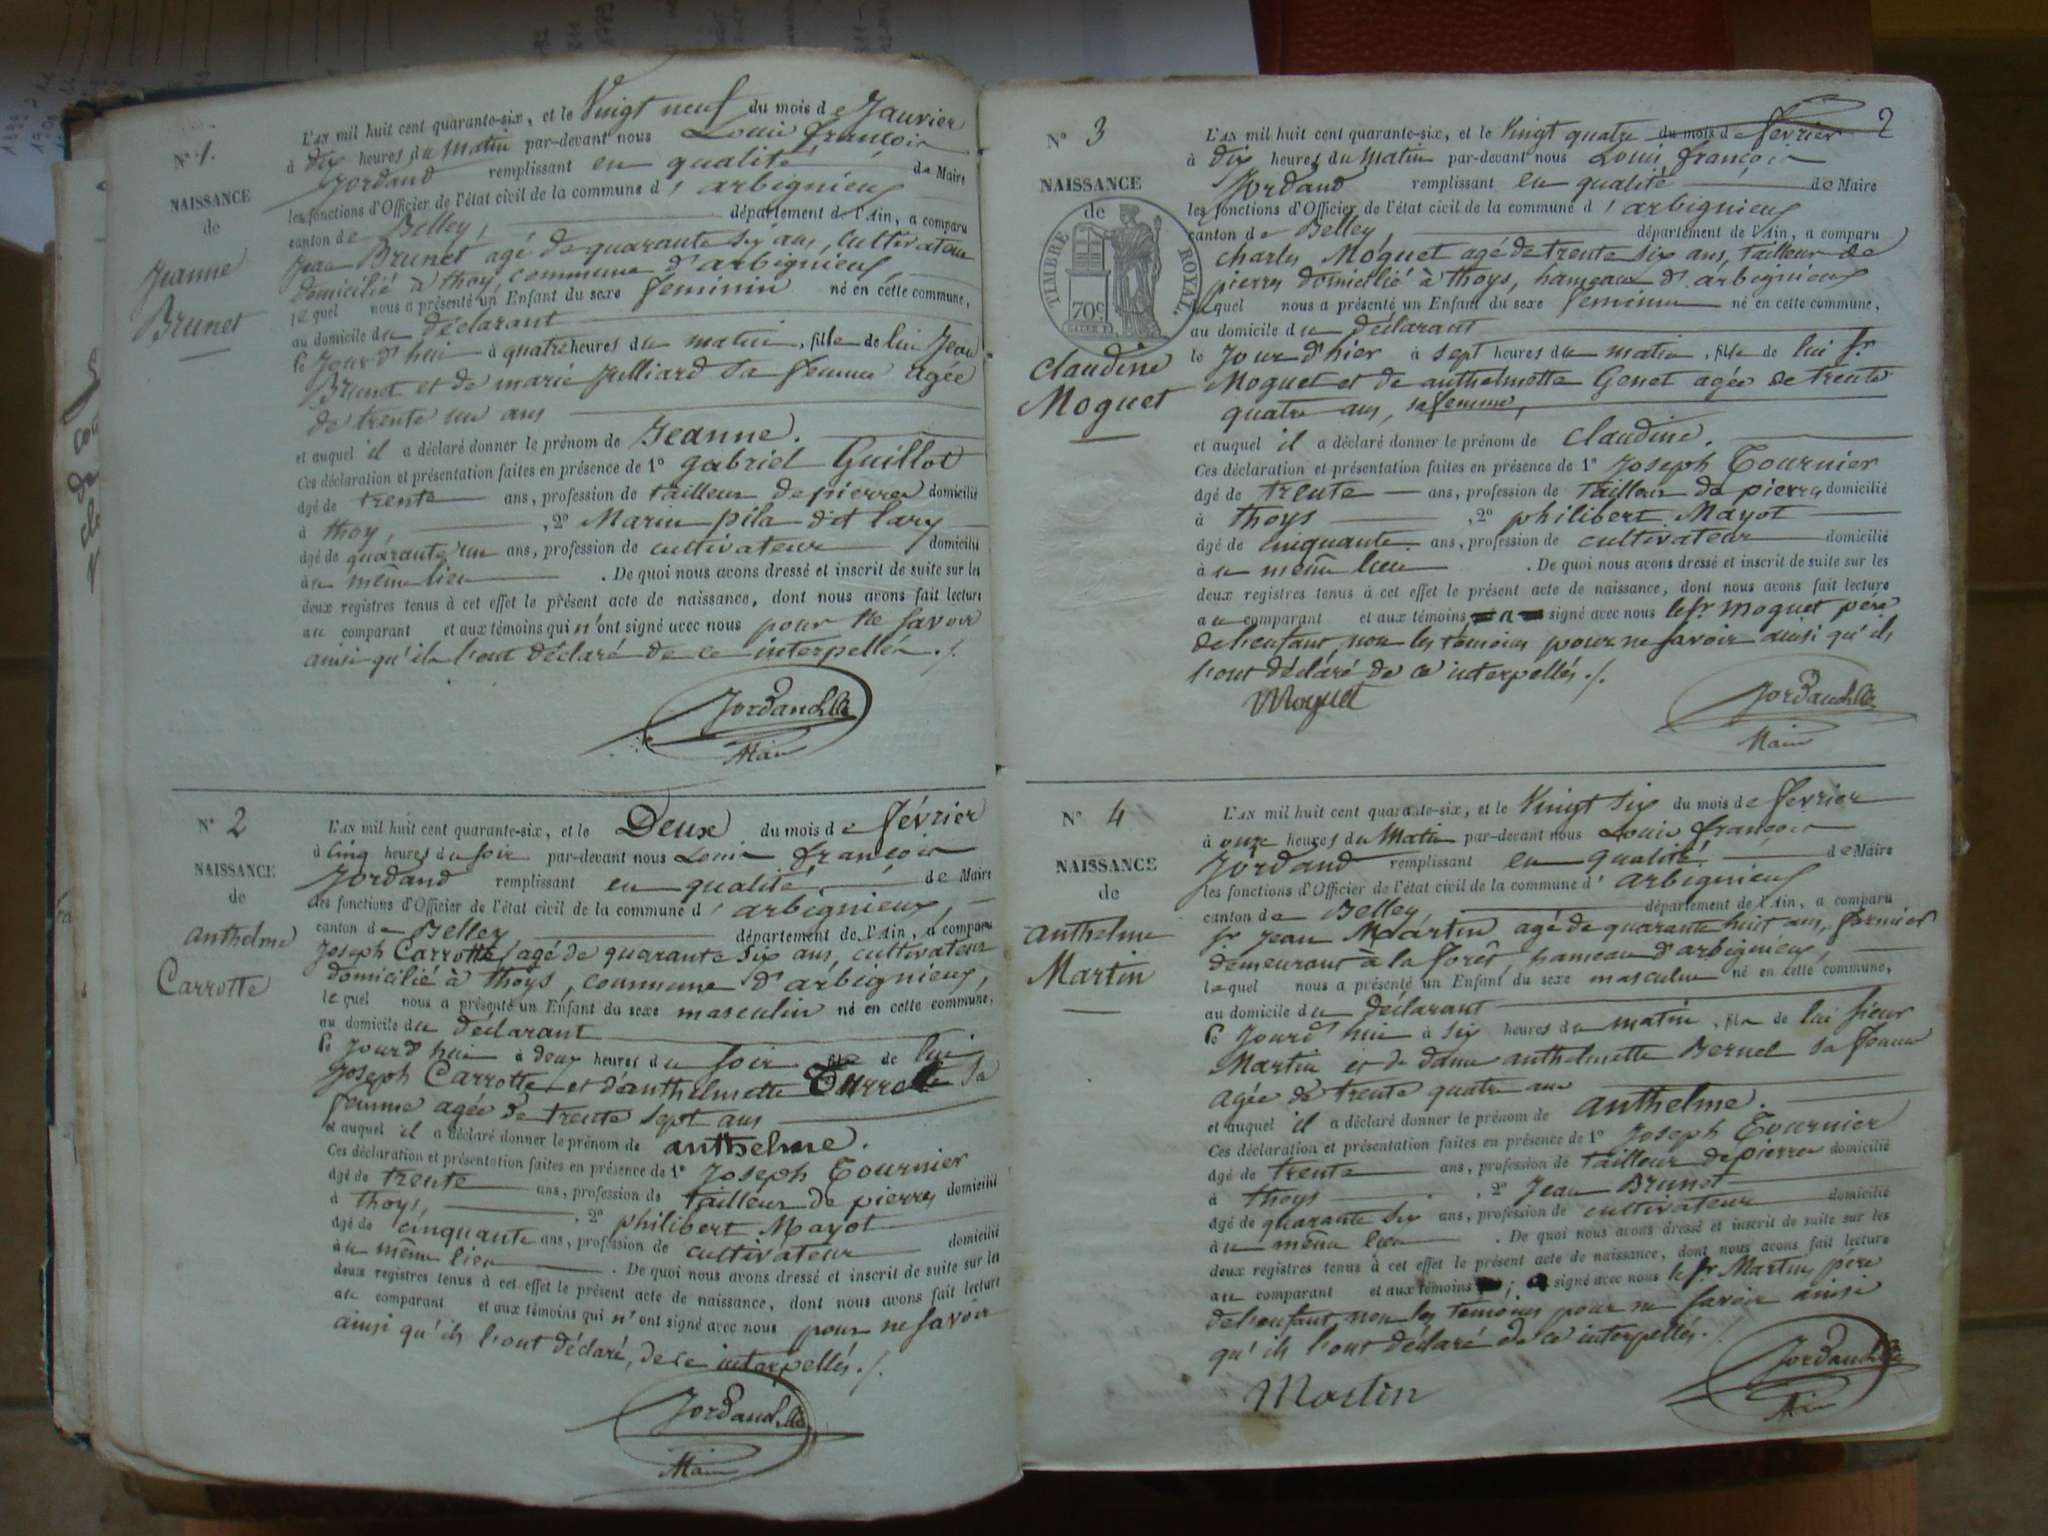 N° 1.
NAISSANCE
de
Jeanne
Brunet
L'AN mil huit cent quarante-six, et le Vingt neuf du mois de Janvier
à dix heures du Matin par-devant nous Louis françois
Jordand remplissant en qualité de Maire
les fonctions d'Officier de l'état civil de la commune d'arbignieux
canton de Belley, département de l'Ain, a comparu
Jean Brunet agé de quarante six ans, Cultivateur
domicilié à thoy, commune d'arbignieux,
lequel nous a présenté un Enfant du sexe feminin né en cette commune,
au domicile du déclarant
Ce Jour d'hui à quatre heures du matin, fille de lui Jean
Brunet et de marie Julliard Sa femme agée
de trente un ans
et auquel il a déclaré donner le prénom de Jeanne.
Ces déclaration et présentation faites en présence de 1° gabriel Guillot
âgé de trente ans, profession de tailleur de pierres domicilié
à thoy, , 2° Marin pila dit lary
âgé de quarante un ans, profession de cultivateur domicilié
au même lieu . De quoi nous avons dressé et inscrit de suite sur les
deux registres tenus à cet effet le présent acte de naissance, dont nous avons fait lecture
au comparant et aux témoins qui n'ont signé avec nous pour ne savoir
ainsi qu'ils l'ont déclaré de ce interpellés./.
Jordand
Maire
N° 2
NAISSANCE
de
anthelme
Carrotte
L'AN mil huit cent quarante-six, et le Deux du mois de février
à Cinq heures du soir par-devant nous Louis françois
Jordand remplissant en qualité de Maire
les fonctions d'Officier de l'état civil de la commune d'arbignieux,
canton de Belley département de l'Ain, a comparu
Joseph Carrotte agé de quarante Six ans, cultivateur
domicilié à thoys, commune d'arbignieux,
lequel nous a présenté un Enfant du sexe masculin né en cette commune,
au domicile du déclarant
Ce Jourd'hui à deux heures du soir fils de lui
Joseph Carrotte et d'anthelmette Sa
femme agée de trente sept ans
et auquel il a déclaré donner le prénom de anthelme.
Ces déclaration et présentation faites en présence de 1° Joseph Tournier
âgé de trente ans, profession de tailleur de pierres domicilié
à thoys, , 2° philibert Mayot
âgé de cinquante ans, profession de cultivateur domicilié
au même lieu . De quoi nous avons dressé et inscrit de suite sur les
deux registres tenus à cet effet le présent acte de naissance, dont nous avons fait lecture
au comparant et aux témoins qui n'ont signé avec nous pour ne savoir
ainsi qu'ils l'ont déclaré, de ce interpellés./.
Jordand
Maire
2
N° 3
NAISSANCE
de
TIMBRE ROYAL.
70c
claudine
Moquet
L'AN mil huit cent quarante-six, et le Vingt quatre du mois de février
à dix heures du Matin par-devant nous Louis françois
Jordand remplissant en qualité de Maire
les fonctions d'Officier de l'état civil de la commune d'arbignieux
canton de Belley, département de l'Ain, a comparu
charles Moquet agé de trente six ans, tailleur de
pierres domicilié à thoys, hameau d'arbignieux
lequel nous a présenté un Enfant du sexe feminin né en cette commune,
au domicile du déclarant
le Jour d'hier à sept heures du matin, fille de lui Sr
Moquet et de anthelmette Genet agée de trente
quatre ans, sa femme,
et auquel il a déclaré donner le prénom de claudine.
Ces déclaration et présentation faites en présence de 1° Joseph Tournier
âgé de trente ans, profession de tailleur de pierres domicilié
à thoys , 2° philibert Mayot
âgé de cinquante ans, profession de cultivateur domicilié
au même lieu . De quoi nous avons dressé et inscrit de suite sur les
deux registres tenus à cet effet le présent acte de naissance, dont nous avons fait lecture
au comparant et aux témoins a signé avec nous le Sr Moquet père
de l'enfant, non les témoins pour ne savoir ainsi qu'ils
l'ont déclaré de ce interpellés./.
Moquet
Jordand
Maire
N° 4
NAISSANCE
de
anthelme
Martin
L'AN mil huit cent quarante-six, et le Vingt Six du mois de février
à onze heures du Matin par-devant nous Louis françois
Jordand remplissant en qualité de Maire
les fonctions d'Officier de l'état civil de la commune d'arbignieux
canton de Belley département de l'Ain, a comparu
Sr Jean Martin agé de quarante huit ans, fermier
demeurant à la forêt hameau d'arbignieux,
lequel nous a présenté un Enfant du sexe masculin né en cette commune,
au domicile du déclarant
Ce Jourd'hui à six heures du matin, fils de lui sieur
Martin et de dame anthelmette Bernel sa femme
agée de trente quatre ans
et auquel il a déclaré donner le prénom de anthelme.
Ces déclaration et présentation faites en présence de 1° Joseph Tournier
âgé de trente ans, profession de tailleur de pierres domicilié
à thoys , 2° Jean Brunet
âgé de quarante six ans, profession de cultivateur domicilié
au même lieu . De quoi nous avons dressé et inscrit de suite sur les
deux registres tenus à cet effet le présent acte de naissance, dont nous avons fait lecture
au comparant et aux témoins ; a signé avec nous le Sr Martin père
de l'enfant, non les témoins pour ne savoir ainsi
qu'ils l'ont déclaré de ce interpellés./.
Martin
Jordand
Maire